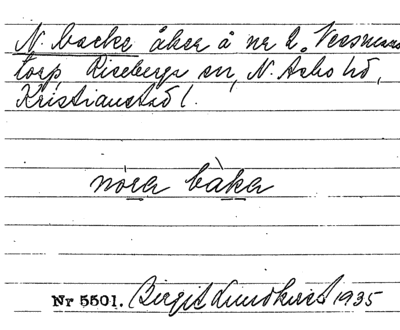 N. backe åker å nr 2, Vesmans
torp, Riseberga sn, N. Åsbo hd,
Kristianstad l.
nòra bàka
Nr 5501. Birgit Lundkvist 1935